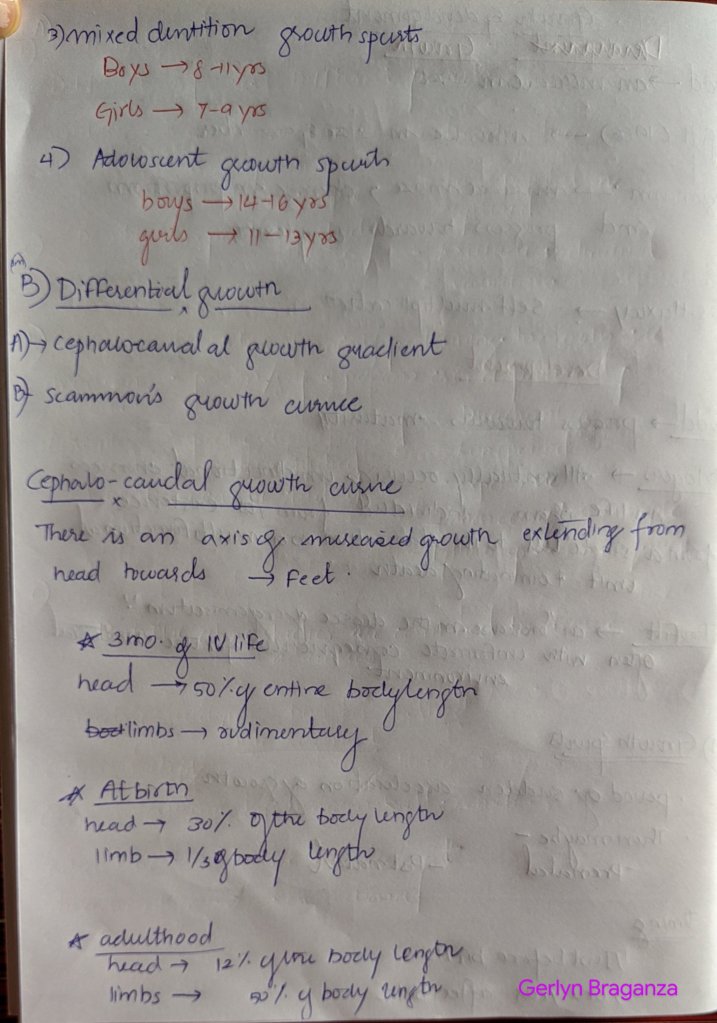 3) mixed dentition growth spurts
Boys → 8-11yrs
Girls → 7-9 yrs
4) Adoloscent growth spurts
boys → 14-16 yrs
girls → 11-13 yrs
B) Differential growth
A) → cephalocaudal growth gradient
B) Scammon's growth curve
Cephalo-caudal growth curve
There is an axis of increased growth extending from
head towards → Feet.
* 3mo. of IU life
head → 50% of entire bodylength
limbs → rudimentary
* At birth
head → 30% of the body length
limb → 1/3 of body length
* adulthood
head → 12% of the body length
limbs → 50% of body length
Gerlyn Braganza